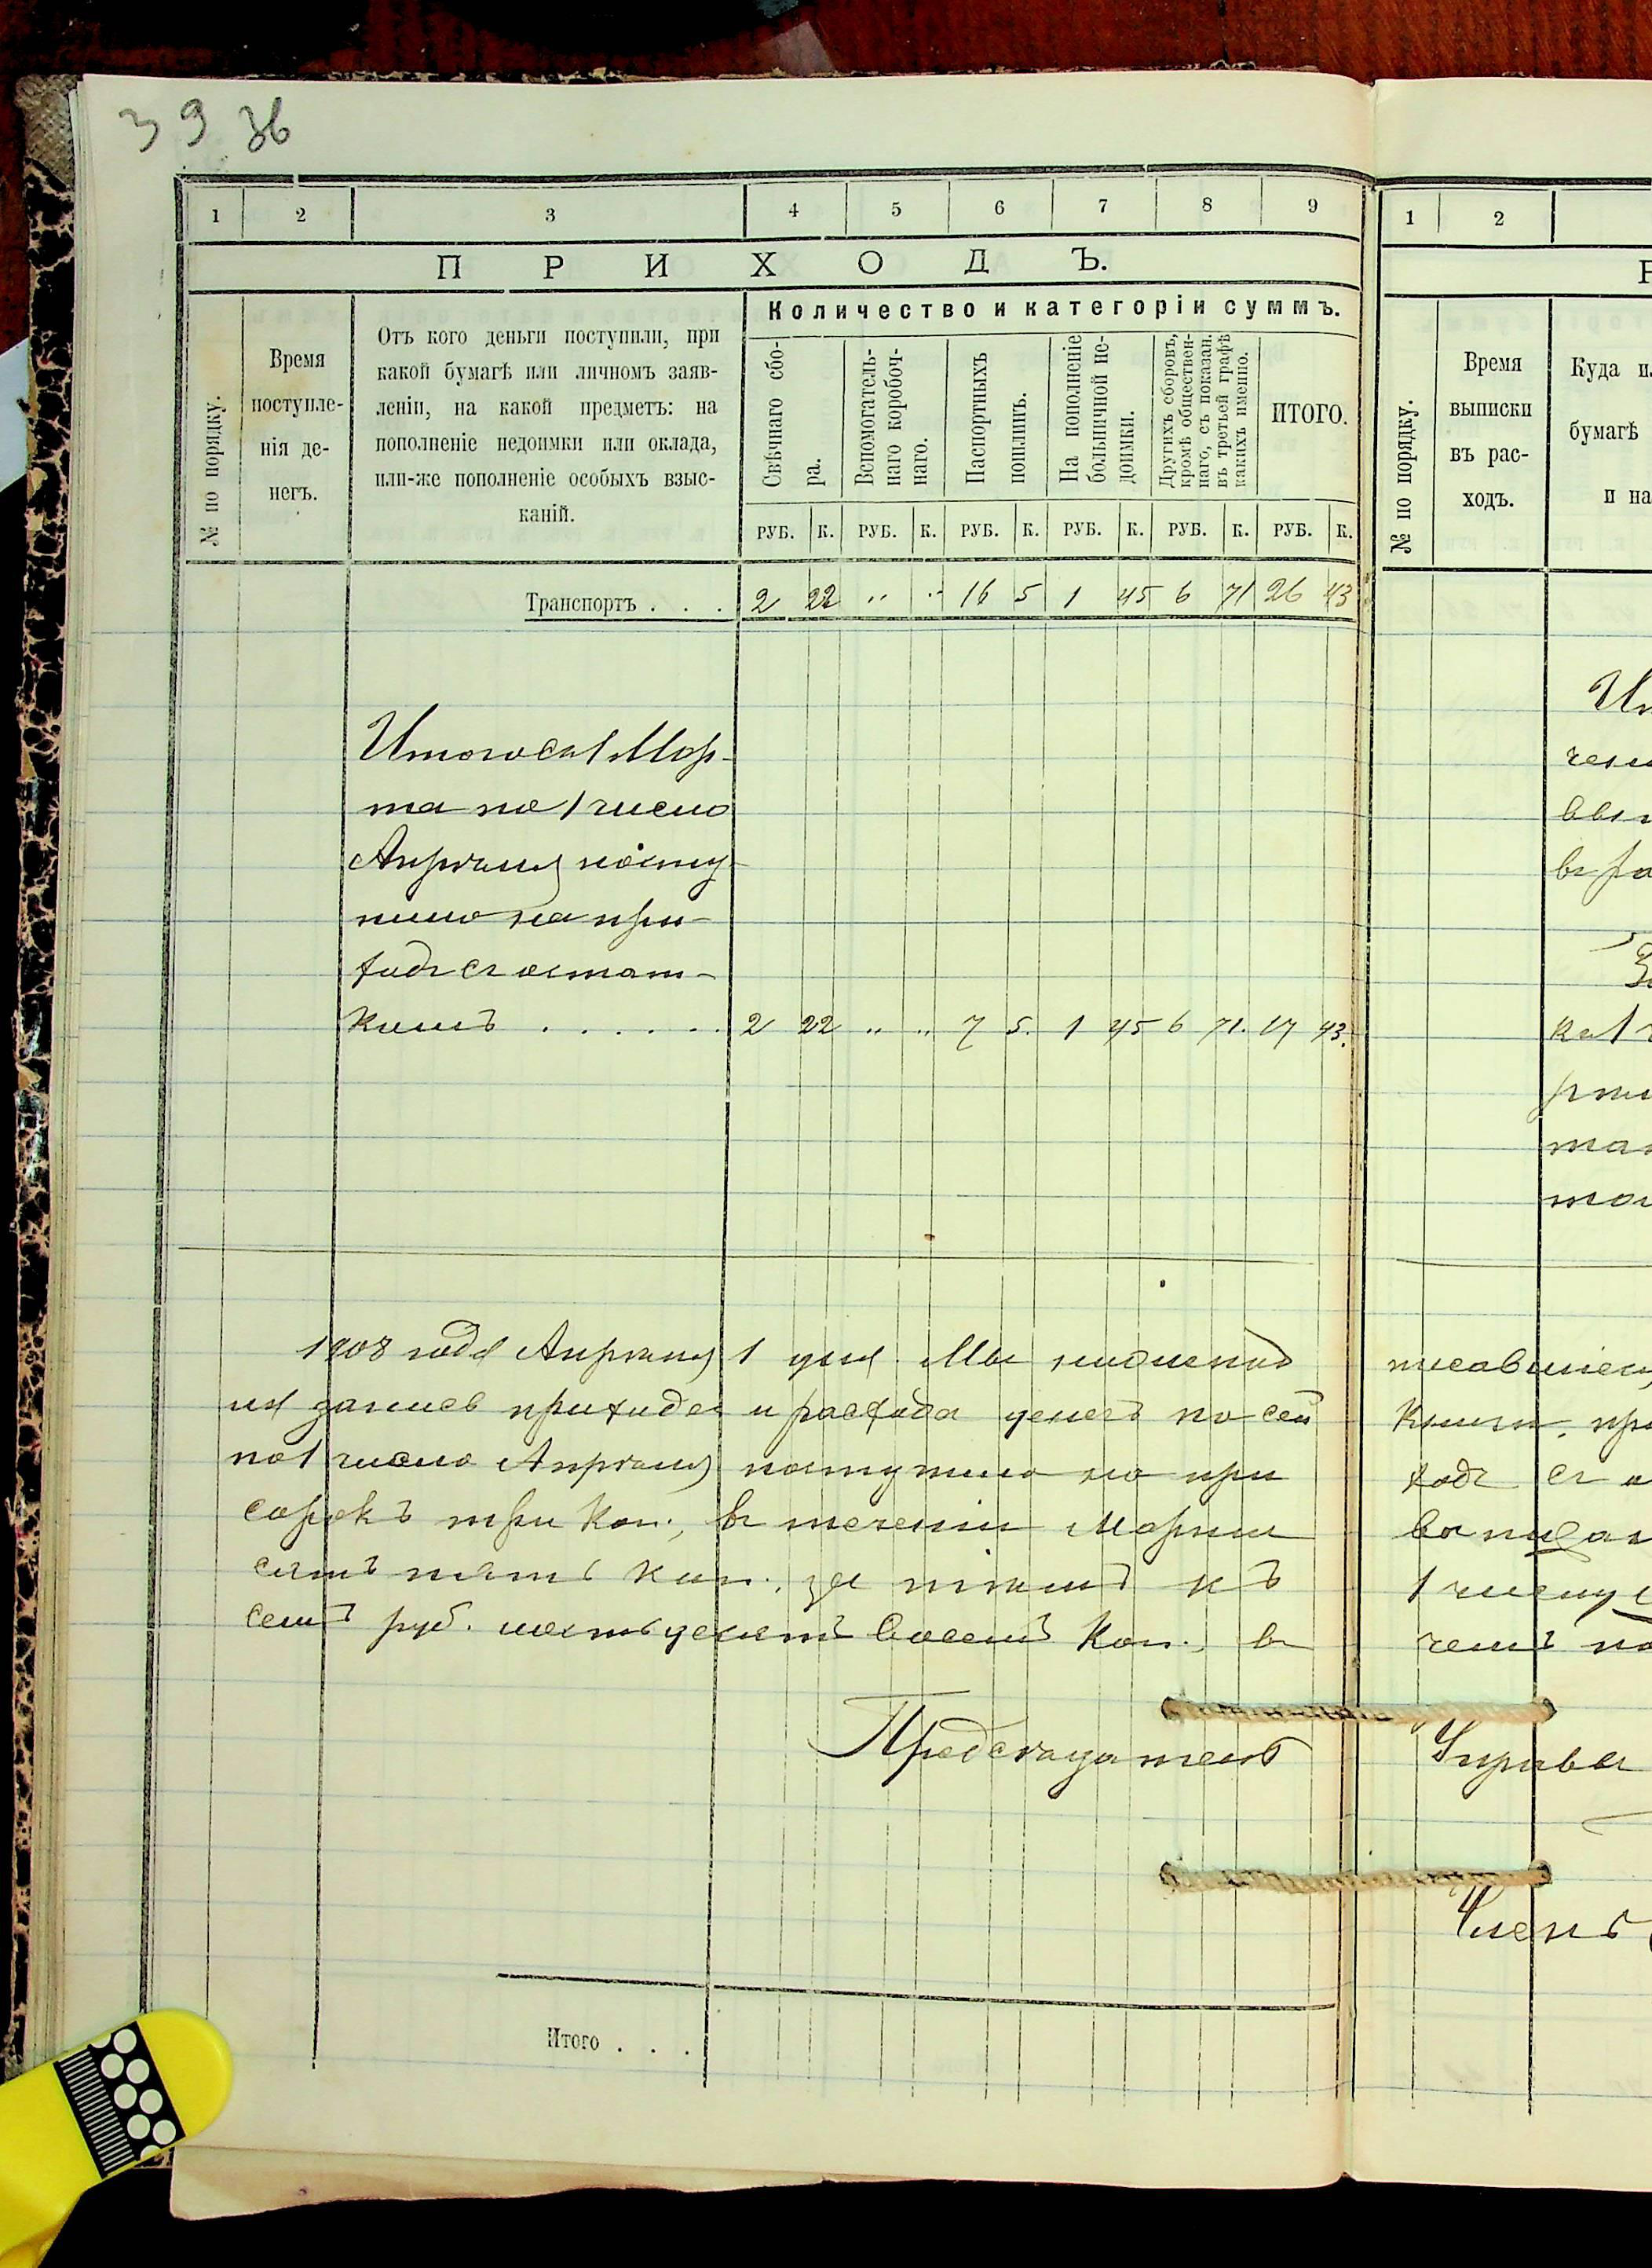 39 36
1 2 3 4 5 6 7 8 9
ПРИХОДЪ.
№ по порядку.
Время
поступле-
нія де-
негъ.
Отъ кого деньги поступили, при
какой бумагѣ или личномъ заяв-
леніи, на какой предметъ: на
пополненіе недоимки или оклада,
или-же пополненіе особыхъ взыс-
каній.
Количество и категоріи суммъ.
Свѣчнаго сбо-
ра.
Вспомогатель-
наго коробоч-
наго.
Паспортныхъ
пошлинъ.
На пополненіе
больничной не-
доимки.
Другихъ сборовъ,
кромѣ обществен-
наго, съ показан.
въ третьей графѣ
какихъ именно.
ИТОГО.
РУБ. К. РУБ. К. РУБ. К. РУБ. К. РУБ. К. РУБ. К.
Транспортъ . . . 2 22 " " 16 5 1 45 6 71 26 43
Итого съ 1 Мар-
та по 1 число
Апрѣля посту-
пило на при-
ходъ съ остат-
комъ . . . . . . 2 22 " " 7 5. 1 45 6 71. 17 43.
1908 года Апрѣля 1 дня Мы нижепод
ия записъ прихода и расхода денегъ по сей
по 1 число Апрѣля поступило на при
сорокъ три коп., въ теченіи Марта
сятъ пять коп., за тѣмъ къ
семъ руб. шестьдесятъ восемъ коп., въ
Предсѣдатель
Итого . . .
1 2
№ по порядку.
Время
выписки
въ рас-
ходъ.
Куда и
бумагѣ
и на
Ит
чен
вып
въ ра
За
ка 1
рѣл
тат
писавшіеся
книги, пр
ходъ съ о
выписан
1 числу
чемъ по
Управы
Членъ